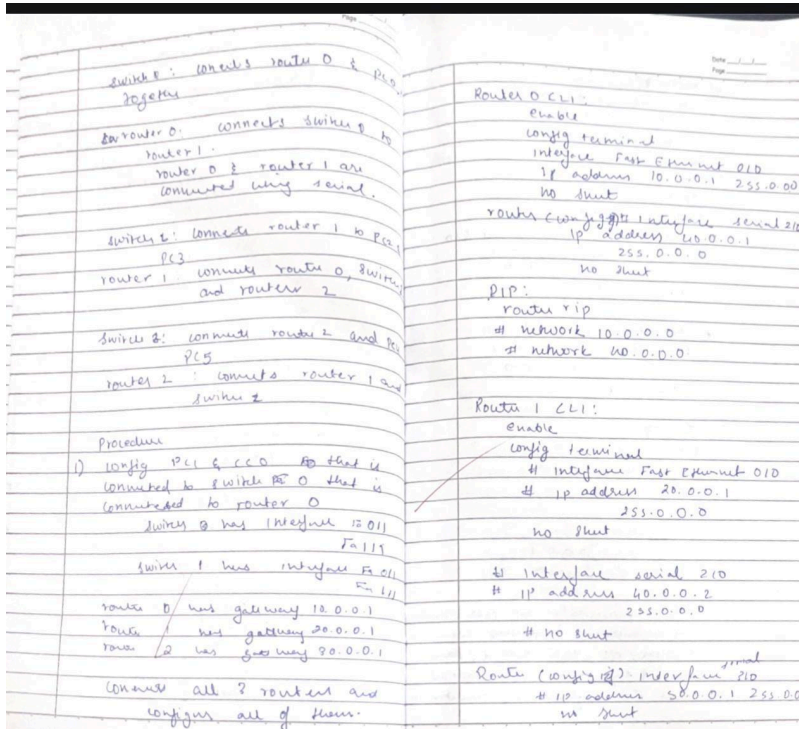 Page
switch 0: connects router 0 & PC0,
together
router 0: connects switch 0 to
router 1.
router 0 & router 1 are
connected using serial.
switch 1: connects router 1 to PC2,
PC3
router 1: connects router 0, switch
and router 2
switch 2: connects router 2 and
PC5
router 2 : connects router 1 and
switch 2
Procedure
1) config PC1 & that is
connected to switch 0 that is
connected to router 0
switch 0 has interface 0/1
Fa 1/1
switch 1 has interface Fa 0/1
Fa 1/1
router 0 has gateway 10.0.0.1
route 1 has gateway 20.0.0.1
2 has gateway 30.0.0.1
connect all 3 routers and
configure all of them.
Date
Page
Router 0 CLI:
enable
config terminal
interface Fast Ethernet 0/0
ip address 10.0.0.1 255.0.00
no shut
router (config)# interface serial 2/0
ip address 40.0.0.1
255.0.0.0
no shut
RIP:
router rip
# network 10.0.0.0
# network 40.0.0.0
Router 1 CLI:
enable
config terminal
# interface Fast Ethernet 0/0
# ip address 20.0.0.1
255.0.0.0
no shut
# interface serial 2/0
# IP address 40.0.0.2
255.0.0.0
# no shut
Route (config if) interface serial 3/0
# IP address 50.0.0.1 255.0.0
no shut